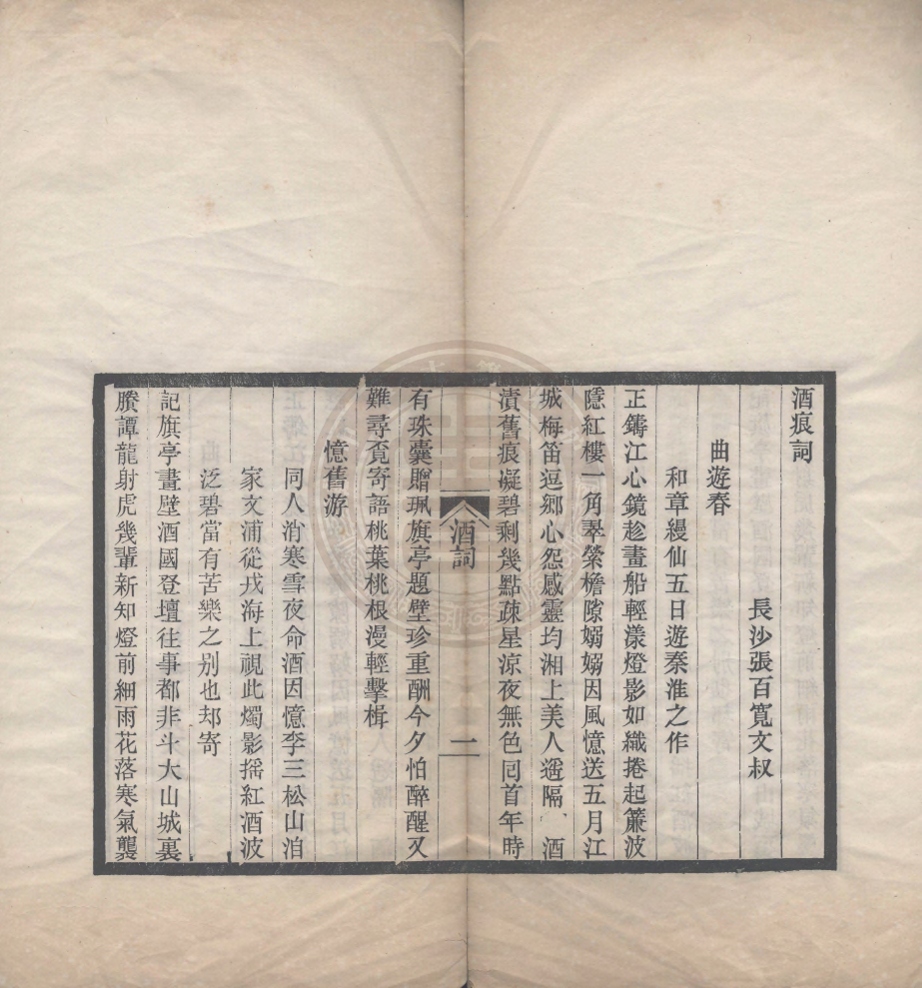 酒痕詞
長沙張百寬文叔
曲遊春
和章縵仙五日遊秦淮之作
正鑄江心鏡趁畫船輕漾燈影如織捲起簾波
隱紅樓一角翠縈檐隙嫋嫋因風憶送五月江
城梅笛逗鄉心怨感靈均湘上美人遥隔、酒
漬舊痕凝碧剩幾點疎星涼夜無色囘首年時
酒詞
二
有珠囊贈珮旗亭題壁珍重酬今夕怕醉醒又
難尋覓寄語桃葉桃根漫輕擊楫
憶舊游
同人消寒雪夜命酒因憶李三松山泊
家文浦從戎海上視此燭影摇紅酒波
泛碧當有苦樂之别也却寄
記旗亭畫壁酒國登壇往事都非斗大山城裏
賸譚龍射虎幾輩新知燈前細雨花落寒氣襲